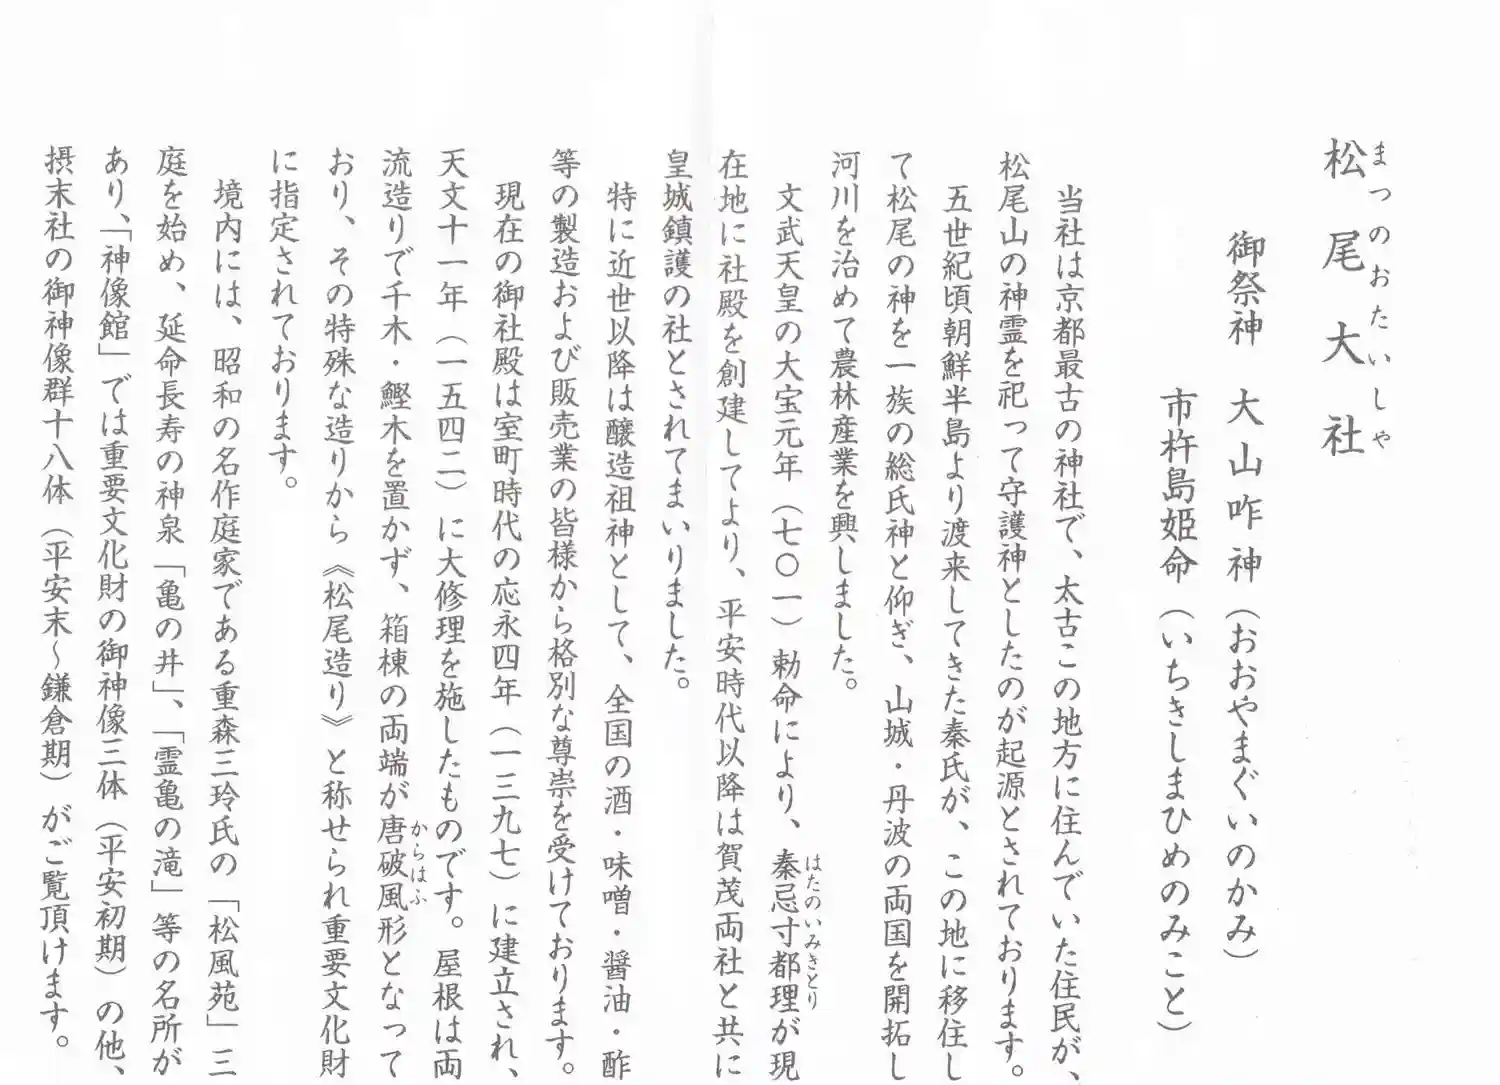 まつのおたいしや
松尾大社
御祭神　大山咋神（おおやまぐいのかみ）
市杵島姫命（いちきしまひめのみこと）
当社は京都最古の神社で、太古この地方に住んでいた住民が、
松尾山の神霊を祀って守護神としたのが起源とされております。
五世紀頃朝鮮半島より渡来してきた秦氏が、この地に移住し
て松尾の神を一族の総氏神と仰ぎ、山城・丹波の両国を開拓し
河川を治めて農林産業を興しました。
はたのいみきとり
文武天皇の大宝元年（七〇一）勅命により、秦忌寸都理が現
在地に社殿を創建してより、平安時代以降は賀茂両社と共に
皇城鎮護の社とされてまいりました。
特に近世以降は醸造祖神として、全国の酒・味噌・醤油・酢
等の製造および販売業の皆様から格別な尊崇を受けております。
現在の御社殿は室町時代の応永四年（一三九七）に建立され、
天文十一年（一五四二）に大修理を施したものです。屋根は両
からはふ
流造りで千木・鰹木を置かず、箱棟の両端が唐破風形となって
おり、その特殊な造りから《松尾造り》と称せられ重要文化財
に指定されております。
境内には、昭和の名作庭家である重森三玲氏の「松風苑」三
庭を始め、延命長寿の神泉「亀の井」、「霊亀の滝」等の名所が
あり、「神像館」では重要文化財の御神像三体（平安初期）の他、
摂末社の御神像群十八体（平安末～鎌倉期）がご覧頂けます。